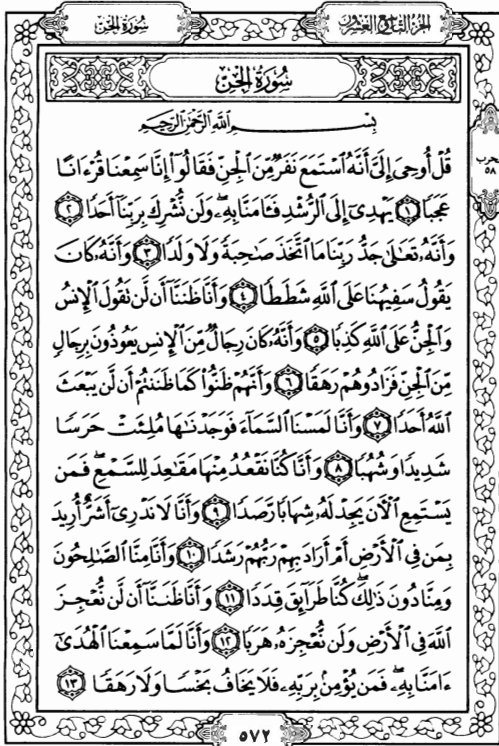 الجزء التاسع والعشرون
سورة الجن
سُورَةُ الجِنِّ
بِسْمِ اللَّهِ الرَّحْمَٰنِ الرَّحِيمِ
قُلْ أُوحِيَ إِلَيَّ أَنَّهُ ٱسْتَمَعَ نَفَرٌ مِّنَ ٱلْجِنِّ فَقَالُوٓا۟ إِنَّا سَمِعْنَا قُرْءَانًا
عَجَبًا ١ يَهْدِىٓ إِلَى ٱلرُّشْدِ فَـَٔامَنَّا بِهِۦ ۖ وَلَن نُّشْرِكَ بِرَبِّنَآ أَحَدًا ٢
وَأَنَّهُۥ تَعَـٰلَىٰ جَدُّ رَبِّنَا مَا ٱتَّخَذَ صَـٰحِبَةً وَلَا وَلَدًا ٣ وَأَنَّهُۥ كَانَ
يَقُولُ سَفِيهُنَا عَلَى ٱللَّهِ شَطَطًا ٤ وَأَنَّا ظَنَنَّآ أَن لَّن تَقُولَ ٱلْإِنسُ
وَٱلْجِنُّ عَلَى ٱللَّهِ كَذِبًا ٥ وَأَنَّهُۥ كَانَ رِجَالٌ مِّنَ ٱلْإِنسِ يَعُوذُونَ بِرِجَالٍ
مِّنَ ٱلْجِنِّ فَزَادُوهُمْ رَهَقًا ٦ وَأَنَّهُمْ ظَنُّوا۟ كَمَا ظَنَنتُمْ أَن لَّن يَبْعَثَ
ٱللَّهُ أَحَدًا ٧ وَأَنَّا لَمَسْنَا ٱلسَّمَآءَ فَوَجَدْنَـٰهَا مُلِئَتْ حَرَسًا
شَدِيدًا وَشُهُبًا ٨ وَأَنَّا كُنَّا نَقْعُدُ مِنْهَا مَقَـٰعِدَ لِلسَّمْعِ ۖ فَمَن
يَسْتَمِعِ ٱلْـَٔانَ يَجِدْ لَهُۥ شِهَابًا رَّصَدًا ٩ وَأَنَّا لَا نَدْرِىٓ أَشَرٌّ أُرِيدَ
بِمَن فِى ٱلْأَرْضِ أَمْ أَرَادَ بِهِمْ رَبُّهُمْ رَشَدًا ١٠ وَأَنَّا مِنَّا ٱلصَّـٰلِحُونَ
وَمِنَّا دُونَ ذَٰلِكَ ۖ كُنَّا طَرَآئِقَ قِدَدًا ١١ وَأَنَّا ظَنَنَّآ أَن لَّن نُّعْجِزَ
ٱللَّهَ فِى ٱلْأَرْضِ وَلَن نُّعْجِزَهُۥ هَرَبًا ١٢ وَأَنَّا لَمَّا سَمِعْنَا ٱلْهُدَىٰٓ
ءَامَنَّا بِهِۦ ۖ فَمَن يُؤْمِنۢ بِرَبِّهِۦ فَلَا يَخَافُ بَخْسًا وَلَا رَهَقًا ١٣
حزب
٥٨
٥٧٢